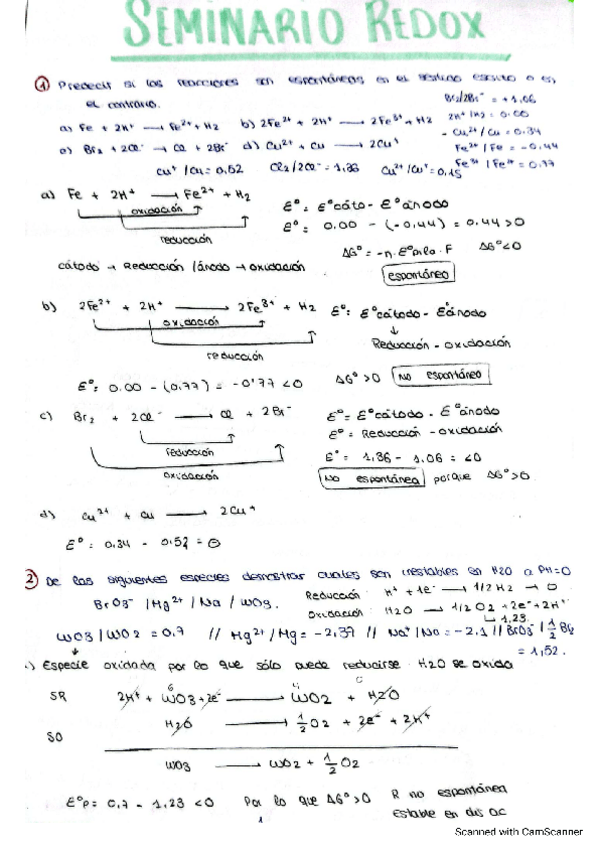 SEMINARIO REDOX
① Predecir si las reacciones son espontáneas en el sentido escrito o en el contrario.
Br2/2Br⁻ = +1,06
2H⁺/H2 = 0.00
- Cu²⁺/Cu = 0.34
Fe²⁺/Fe = -0.44
Fe³⁺/Fe²⁺ = 0.77
a) Fe + 2H⁺ → Fe²⁺ + H2 b) 2Fe²⁺ + 2H⁺ → 2Fe³⁺ + H2
c) Br2 + 2Cl⁻ → Cl + 2Br⁻ d) Cu²⁺ + Cu → 2Cu⁺
Cu⁺/Cu = 0,52 Cl2/2Cl⁻ = 1,36 Cu²⁺/Cu⁺ = 0,15
a) Fe + 2H⁺ → Fe²⁺ + H2
oxidación
reducción
E° = E°cáto - E°ánodo
E° = 0.00 - (-0,44) = 0.44 > 0
ΔG° = -n · E°pila · F ΔG° < 0
cátodo → Reducción / ánodo → oxidación
espontáneo
b) 2Fe²⁺ + 2H⁺ → 2Fe³⁺ + H2
oxidación
reducción
E° = E°cátodo - E°ánodo
↓
Reducción - oxidación
E° = 0.00 - (0,77) = -0'77 < 0 ΔG° > 0 No espontáneo
c) Br2 + 2Cl⁻ → Cl + 2Br⁻
reducción
oxidación
E° = E°cátodo - E°ánodo
E° = Reducción - oxidación
E° = 1,36 - 1,06 = < 0
No espontánea porque ΔG° > 0
d) Cu²⁺ + Cu → 2Cu⁺
E° = 0,34 - 0,52 = 0
② De las siguientes especies demostrar cuales son inestables en H2O a PH=0
BrO3⁻ / Mg²⁺ / Na / WO3.
Reducción: H⁺ + 1e⁻ → 1/2 H2 → 0
Oxidación: H2O → 1/2 O2 + 2e⁻ + 2H⁺
↳ 1,23.
WO3/WO2 = 0.7 // Mg²⁺/Mg = -2,37 // Na⁺/Na = -2.1 // BrO3⁻/½ Br2 = 1,52.
Especie oxidada por lo que sólo puede reducirse. H2O se oxida
SR 2H⁺ + WO3 + 2e⁻ → WO2 + H2O
SO H2O → ½ O2 + 2e⁻ + 2H⁺
WO3 → WO2 + ½ O2
E°p = 0,7 - 1,23 < 0 Por lo que ΔG° > 0 R no espontánea
Estable en dis ac
1
Scanned with CamScanner